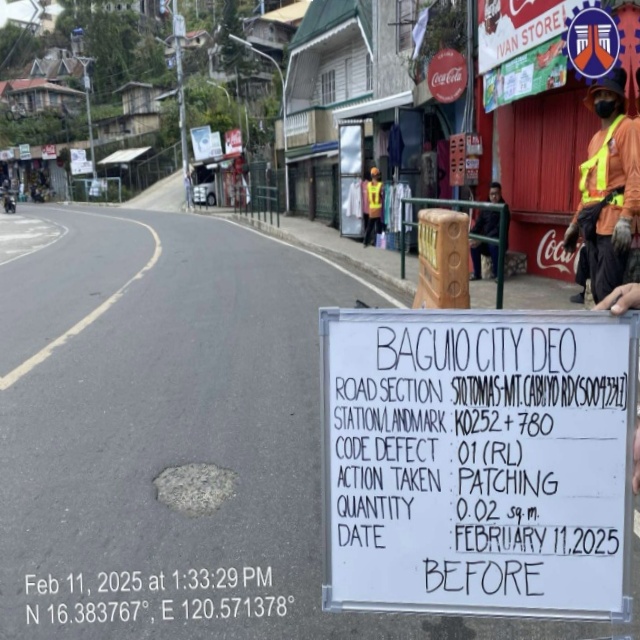 IVAN STORE
Coca-Cola
Coca-Cola
BAGUIO CITY DEO
ROAD SECTION STO TOMAS-MT. CABUYO RD (S00493BI)
STATION/LANDMARK : K0252 + 780
CODE DEFECT : 01 (RL)
ACTION TAKEN : PATCHING
QUANTITY : 0.02 sq.m.
DATE : FEBRUARY 11, 2025
BEFORE
Feb 11, 2025 at 1:33:29 PM
N 16.383767°, E 120.571378°